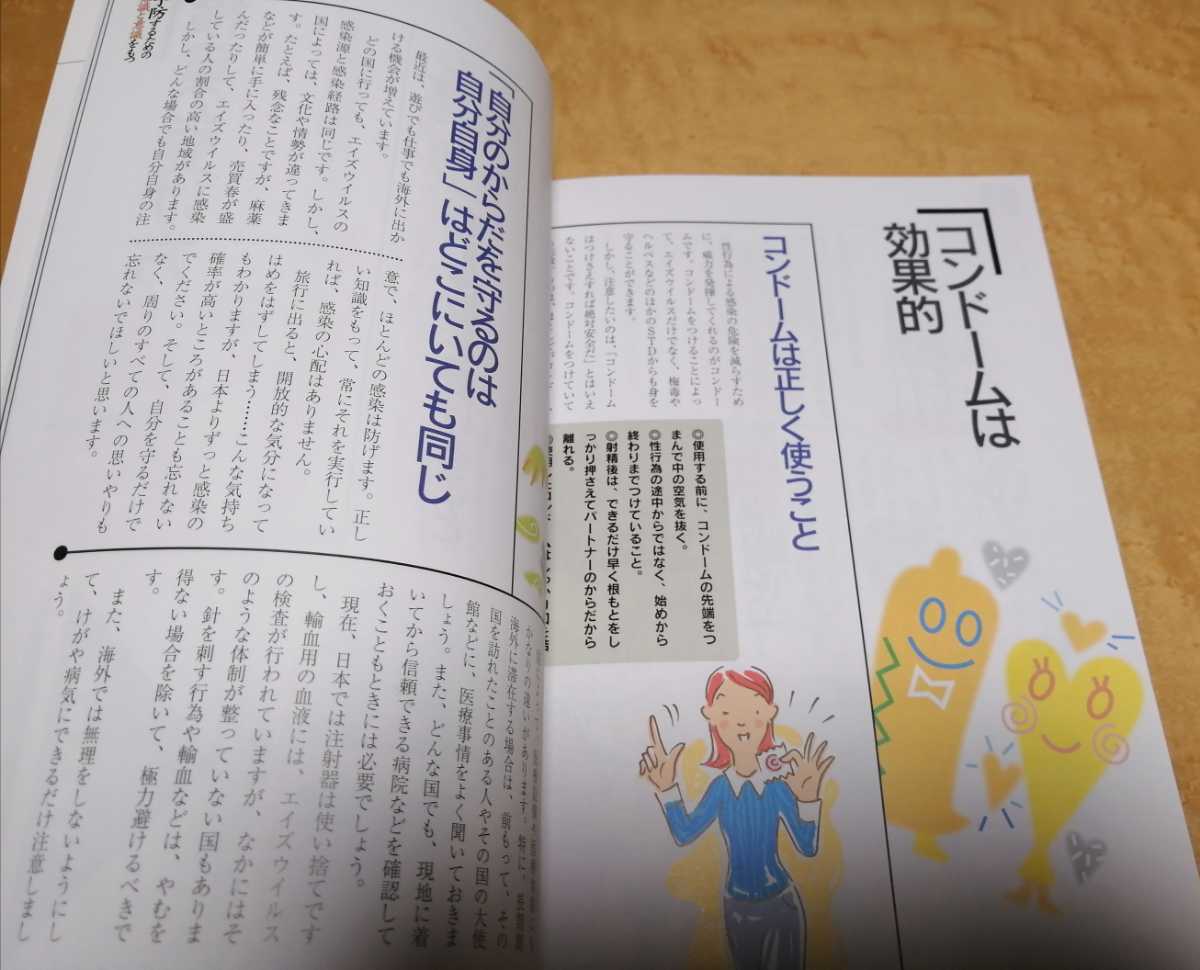 コンドームは
効果的
コンドームは正しく使うこと
性行為による感染の危険を減らすため
に、威力を発揮してくれるのがコンドー
ムです。コンドームをつけることによっ
て、エイズウイルスだけでなく、梅毒や
ヘルペスなどのほかのSTDからも身を
守ることができます。
しかし、注意したいのは、「コンドーム
はつけさえすれば絶対安全だ」とはいえ
ないことです。コンドームをつけていて
◎使用する前に、コンドームの先端をつ
まんで中の空気を抜く。
◎性行為の途中からではなく、始めから
終わりまでつけていること。
◎射精後は、できるだけ早く根もとをし
っかり押さえてパートナーのからだから
離れる。
予防するための
知識と意識をもつ
「自分のからだを守るのは
自分自身」はどこにいても同じ
最近は、遊びでも仕事でも海外に出か
ける機会が増えています。
どの国に行っても、エイズウイルスの
感染源と感染経路は同じです。しかし、
国によっては、文化や情勢が違ってきま
す。たとえば、残念なことですが、麻薬
などが簡単に手に入ったり、売買春が盛
んだったりして、エイズウイルスに感染
している人の割合の高い地域があります。
しかし、どんな場合でも自分自身の注
意で、ほとんどの感染は防げます。正し
い知識をもって、常にそれを実行してい
れば、感染の心配はありません。
旅行に出ると、開放的な気分になって
はめをはずしてしまう……こんな気持ち
もわかりますが、日本よりずっと感染の
確率が高いところがあることも忘れない
でください。そして、自分を守るだけで
なく、周りのすべての人への思いやりも
忘れないでほしいと思います。
かなりの違いがあります。特に、
海外に滞在する場合は、前もって、その
国を訪れたことのある人やその国の大使
館などに、医療事情をよく聞いておきま
しょう。また、どんな国でも、現地に着
いてから信頼できる病院などを確認して
おくこともときには必要でしょう。
現在、日本では注射器は使い捨てです
し、輸血用の血液には、エイズウイルス
の検査が行われていますが、なかにはそ
のような体制が整っていない国もありま
す。針を刺す行為や輸血などは、やむを
得ない場合を除いて、極力避けるべきで
す。
また、海外では無理をしないようにし
て、けがや病気にできるだけ注意しまし
ょう。